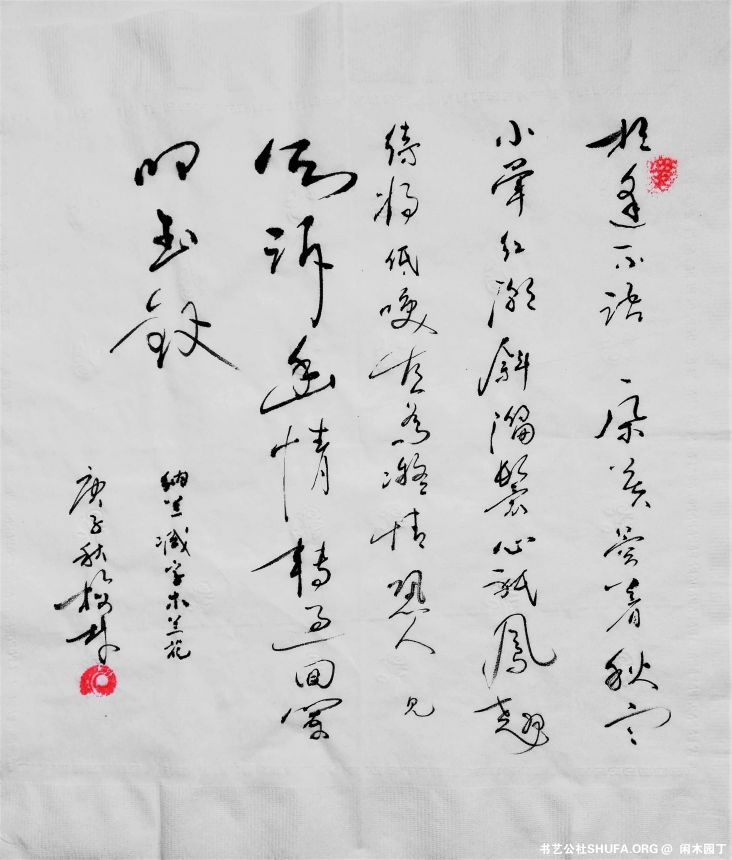 相逢不语 一朵芙蓉着秋雨
小晕红潮斜溜鬟心祇凤翘
待将低唤直为凝情恐人见
欲诉幽情转过回阑
叩玉钗
纳兰减字木兰花
庚子秋
书艺公社SHUFA.ORG @ 闲木园丁